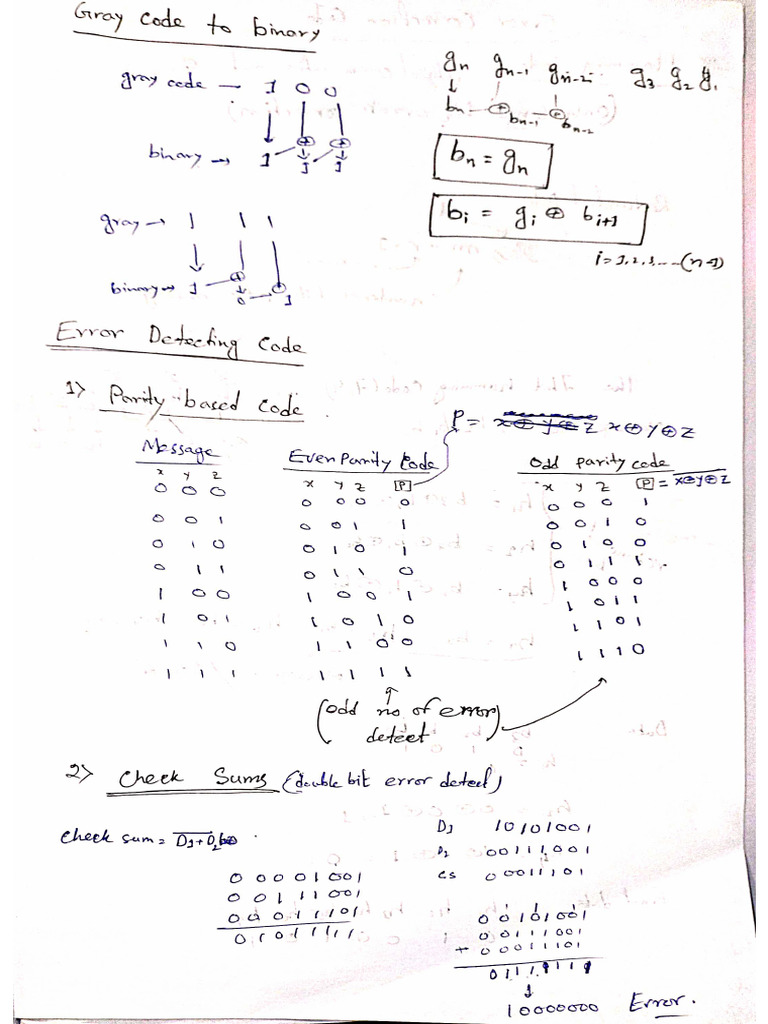 Gray Code to binary
gray code → 1 0 0
binary → 1 1 1
gray → 1 1 1
binary → 1 0 1
gn gn-1 gn-2 g3 g2 g1
bn ⊕ bn-1 ⊕ bn-2
bn = gn
bi = gi ⊕ bi+1
i = 1,2,3,....(n-1)
Error Detecting Code
1> Parity-based code
P = x ⊕ y ⊕ z x⊕y⊕z
Message
x y z
0 0 0
0 0 1
0 1 0
0 1 1
1 0 0
1 0 1
1 1 0
1 1 1
Even parity Code
x y z P
0 0 0 0
0 0 1 1
0 1 0 1
0 1 1 0
1 0 0 1
1 0 1 0
1 1 0 0
1 1 1 1
Odd parity code
x y z P = x⊕y⊕z
0 0 0 1
0 0 1 0
0 1 0 0
0 1 1 1
1 0 0 0
1 0 1 1
1 1 0 1
1 1 1 0
(odd no of error)
detect
2> Check Sums (double bit error detect)
Check sum = D1+D2
0 0 0 0 1 0 0 1
0 0 1 1 1 0 0 1
0 0 0 1 1 1 0 1
0 1 0 1 1 1 1 1
D1 10101001
D2 00111001
CS 00011101
0 0 1 0 1 0 0 1
0 0 1 1 1 0 0 1
+ 0 0 0 1 1 1 0 1
0 1 1 1 1 1 1 1
↓
10000000 Error.